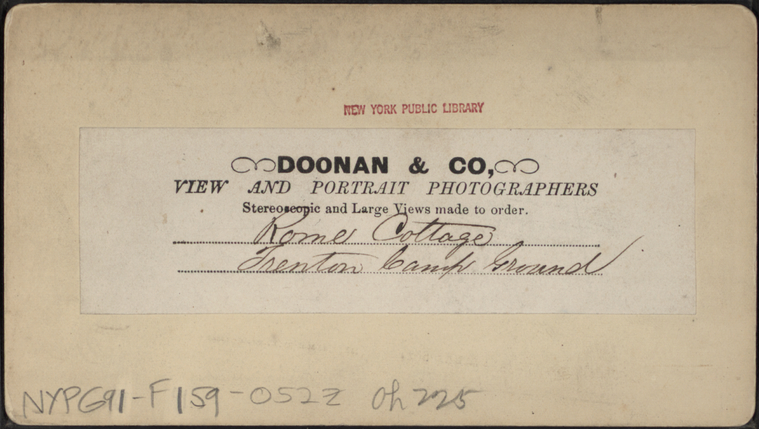 NEW YORK PUBLIC LIBRARY
DOONAN & CO,
VIEW AND PORTRAIT PHOTOGRAPHERS
Stereoscopic and Large Views made to order.
Rome Cottage
Trenton Camp Ground
NYPG91-F159-052Z Oh 225